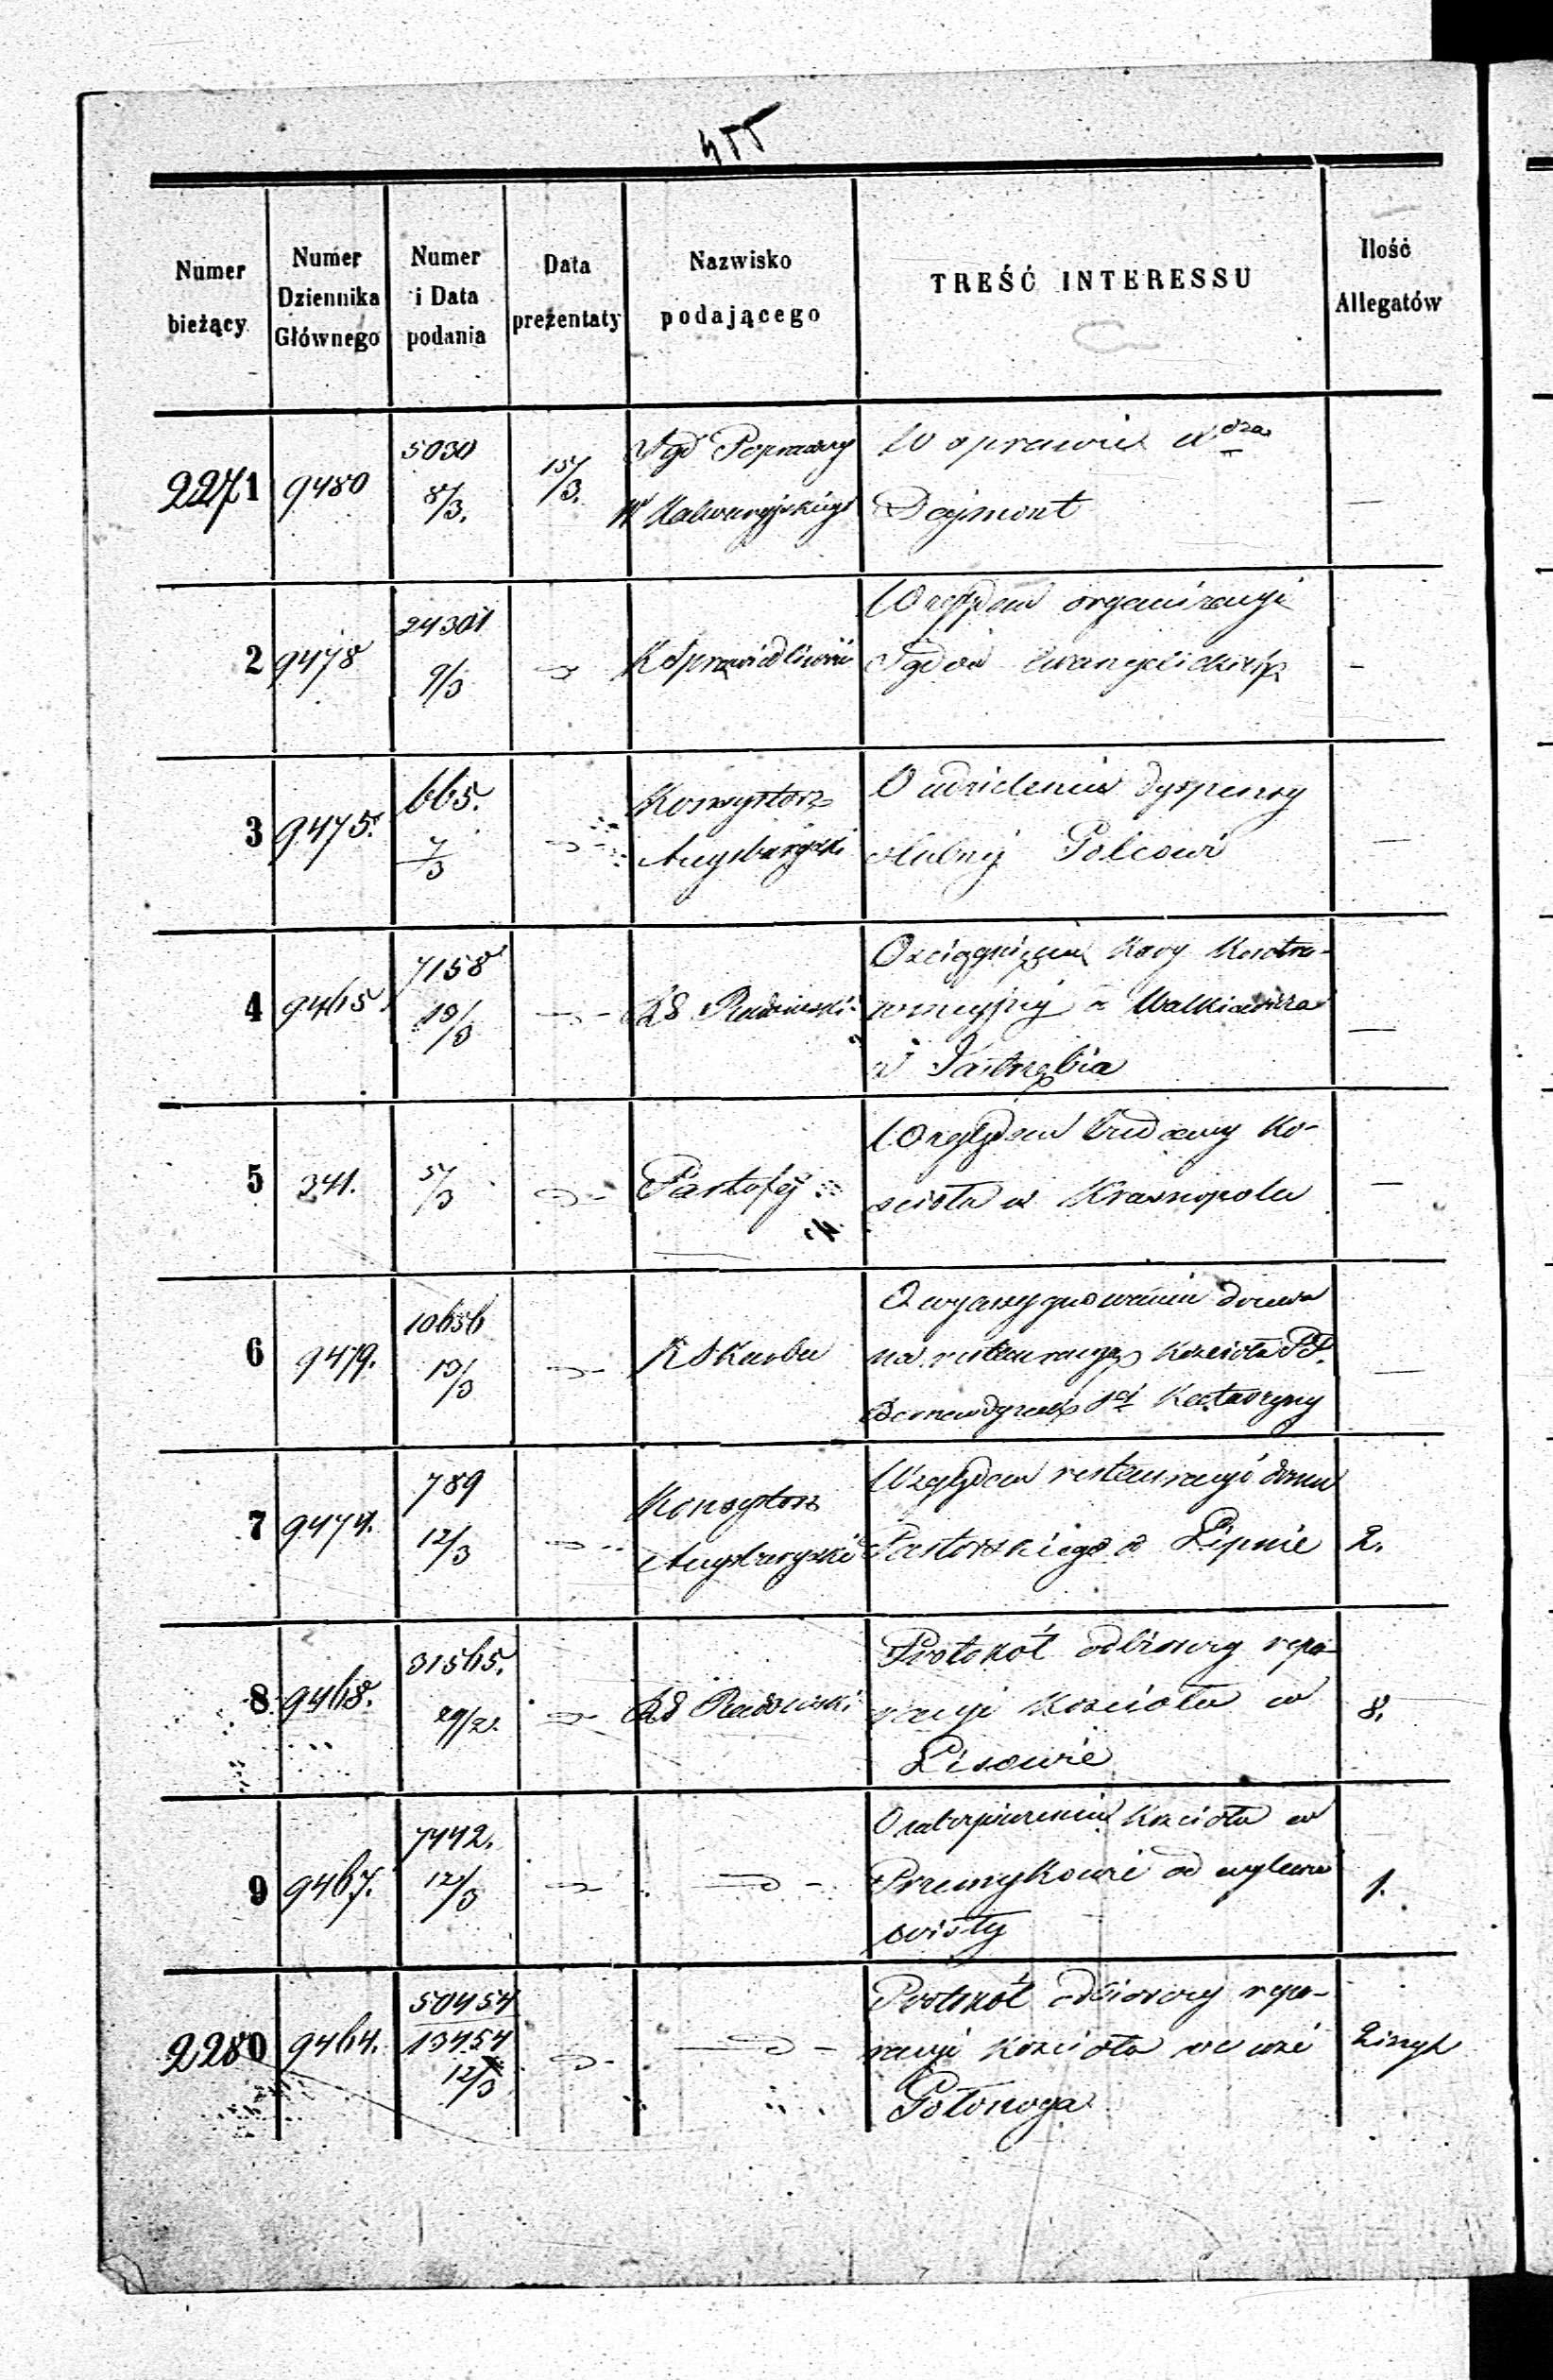 455
Numer bieżący
Numer Dziennika Głównego
Numer i Data podania
Data prezentaty
Nazwisko podającego
TREŚĆ INTERESSU
Ilość Allegatów
2271
9480
5030
8/3.
15/3.
Sąd Poprawczy
W Kalwaryjskiego
W sprawie Xdza
Dejmont
—
2
9478
24301
9/3
KSprawiedliwości
Względem organizacyi
Sądów Ewangelickich
—
3
9475.
665.
7/3
Konsystorz
Augsburgski
O udzielenie dyspensy
ślubnej Golcowi
—
4
9465
7158
10/3
RG Radomski
O ściągnięcie Kary Kontra-
wencyjnej z Walkiewicza
i Jastrzębia
—
5
341.
5/3
Względem budowy Ko-
ścioła w Krasnopolu
—
6
9479.
10656
10/3
KSkarbu
O wyasygnowaniu drzewa
na restauracyą Kościoła PP.
Bernardynek Sej Katarzyny
—
7
9474.
789
12/3
Konsystorz
Augsburgski
Względem restauracyi domu
Pastorskiego w Lipnie
2.
8
9468.
31565.
29/2.
RG Radomski
Protokół odbiorczy repa-
racyi Kościoła w
Lisowie
8.
9
9467.
7442.
12/3
O zabezpieczenie Kościoła w
Przemykowie od wylewu
wisły
1.
2280
9464.
50454
13454
12/3
Protokół odbiorczy repa-
racyi Kościoła we wsi
Gołonoga
2 inzył